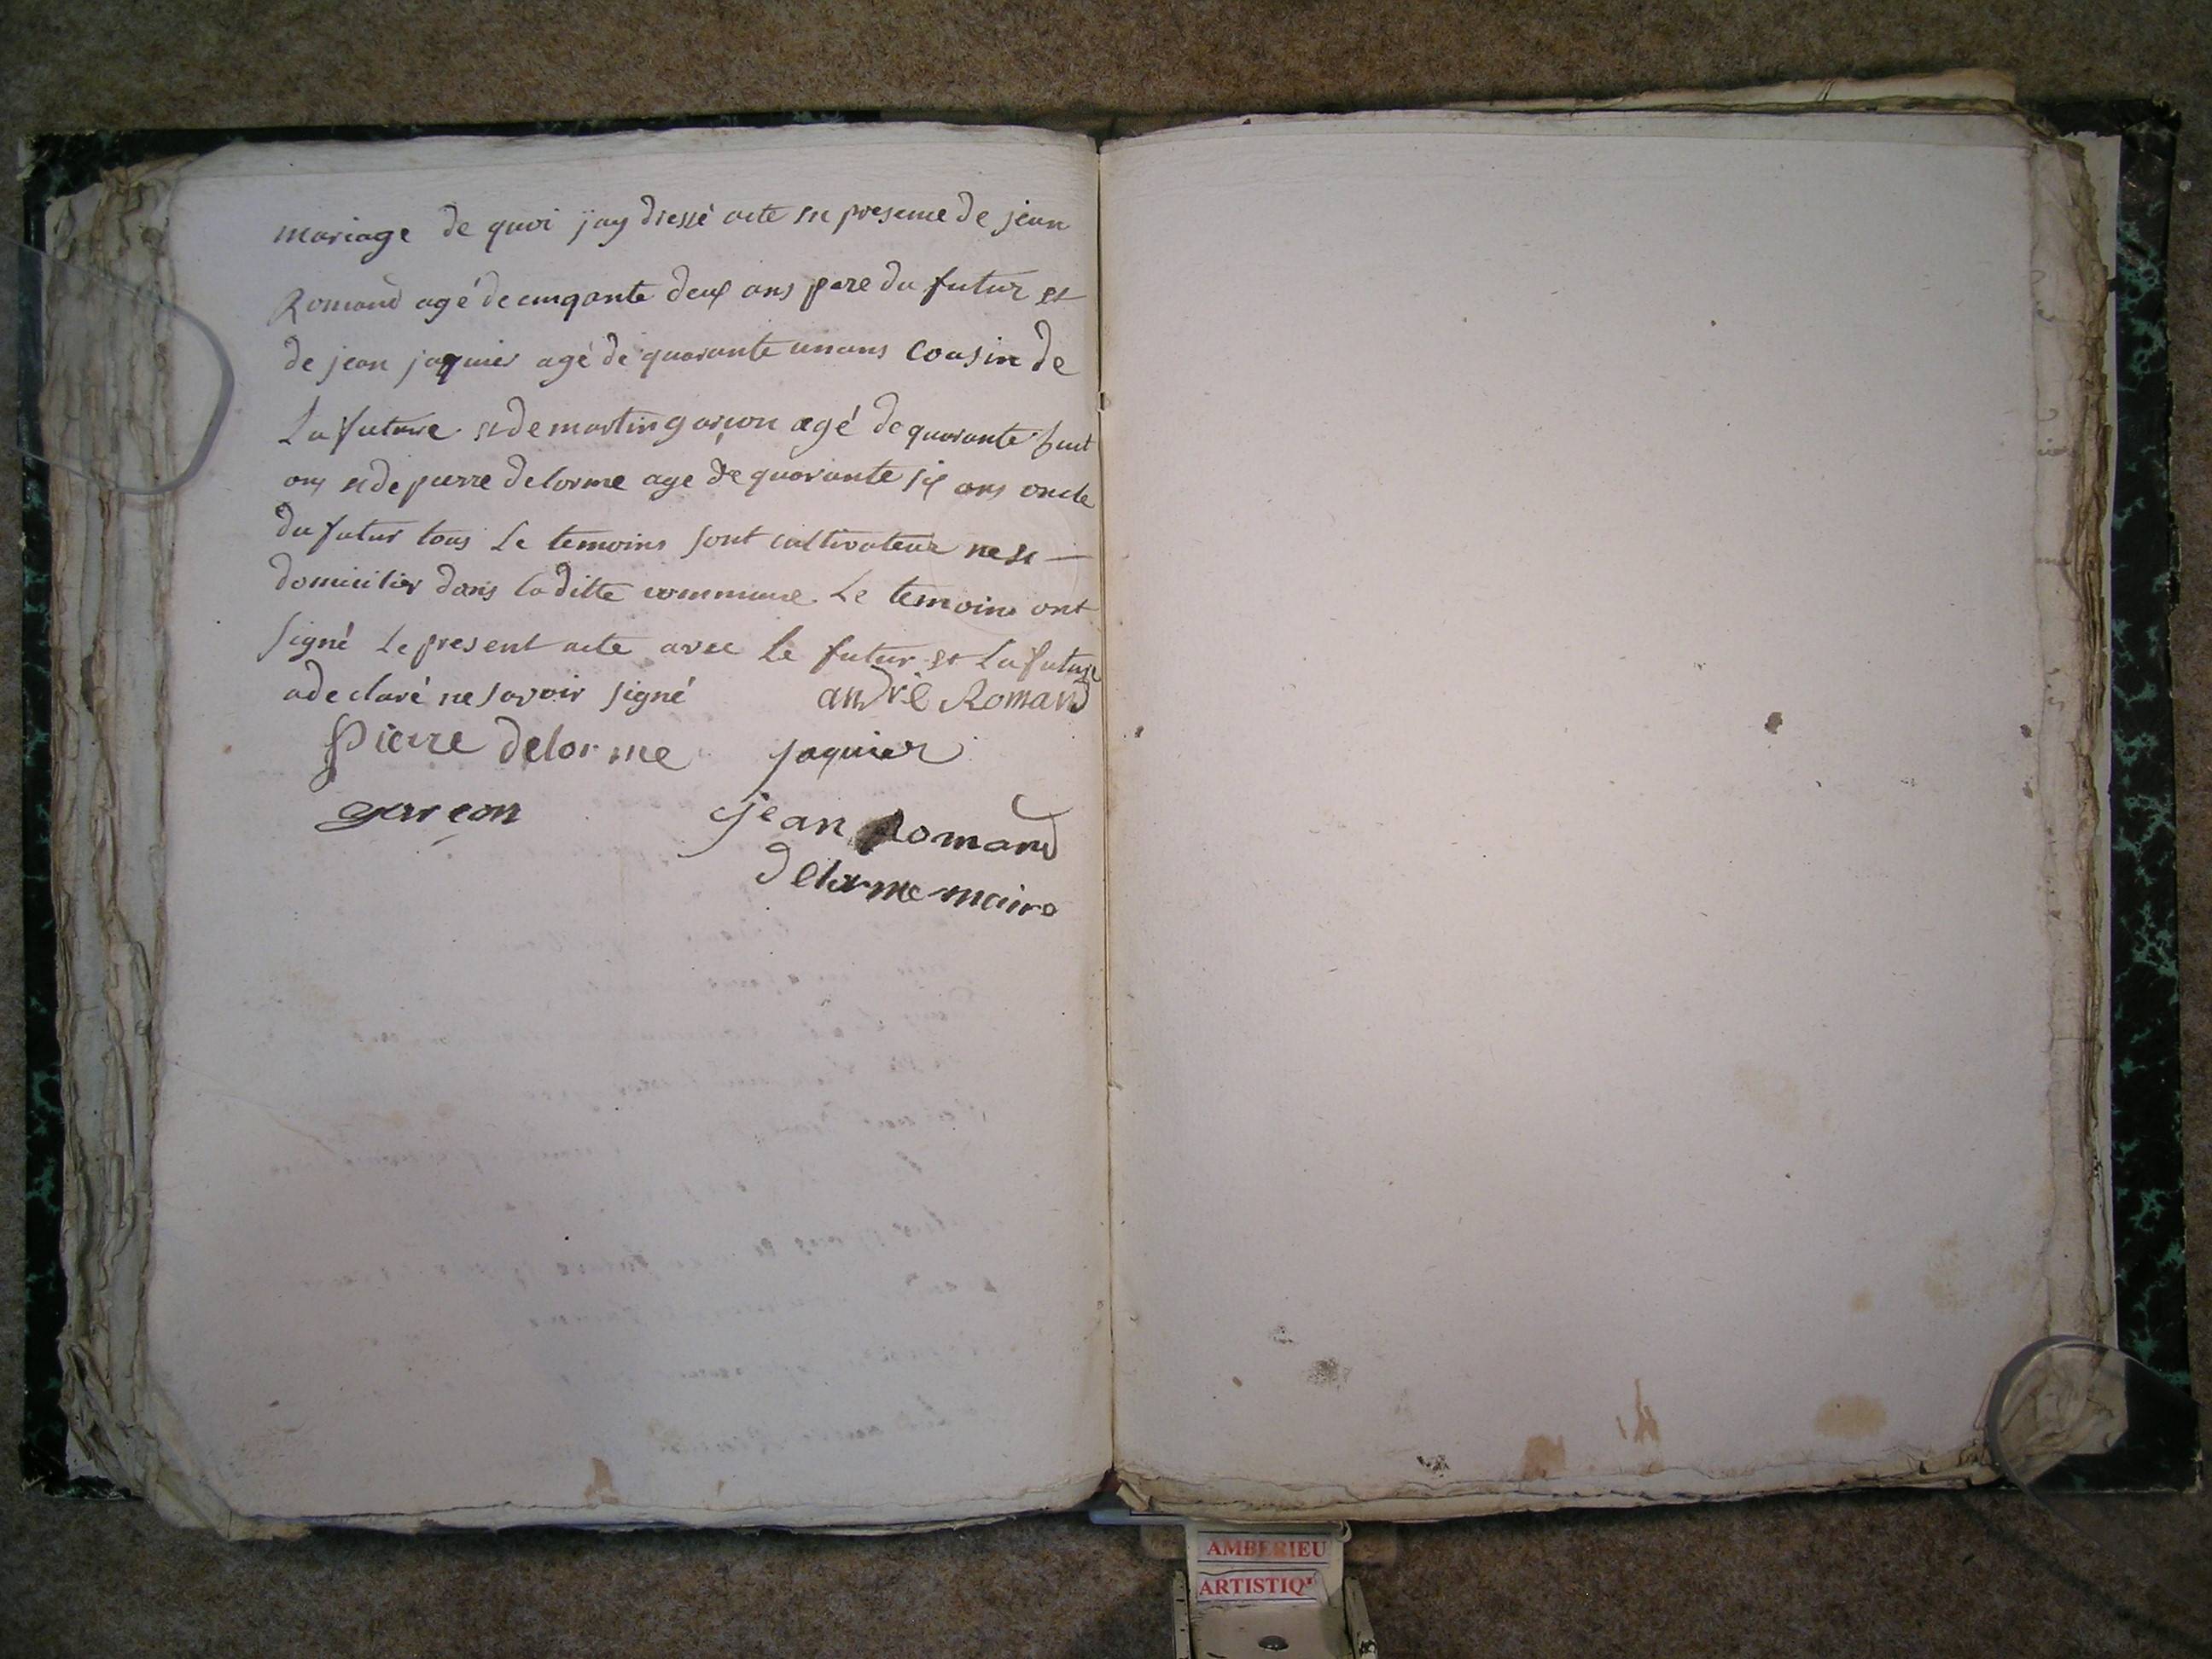 mariage de quoi jay dressé acte en presence de jean
Romand agé de cinqante deux ans pere du futur et
de jean jaquier agé de quarante un ans cousin de
La future et de martin garçon agé de quarante huit
ans et de pierre delorme age de quarante six ans oncle
du futur tous Le temoins sont cultivateur ne et —
domicilier dans laditte commune Le temoins ont
signé Le present acte avec Le futur et La future
a declaré ne savoir signé andré Romand
Pierre delorme jaquier
garçon jean Romand
delorme maire
AMBERIEU
ARTISTIQ